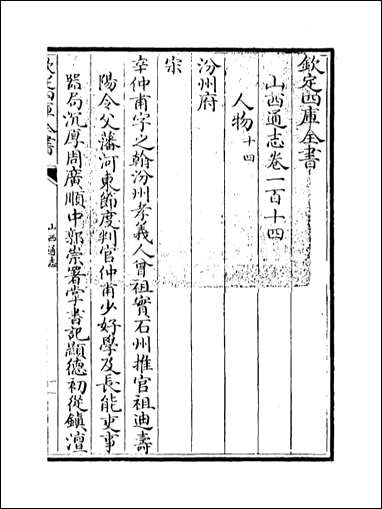 欽定四庫全書
山西通志卷一百十四
人物十四
汾州府
宋
辛仲甫字之翰汾州孝義人曾祖實石州推官祖迪壽
陽令父藩河東節度判官仲甫少好學及長能吏事
器局沉厚周廣順中郭崇署掌書記顯德初從鎮澶
欽定四庫全書
山西通志